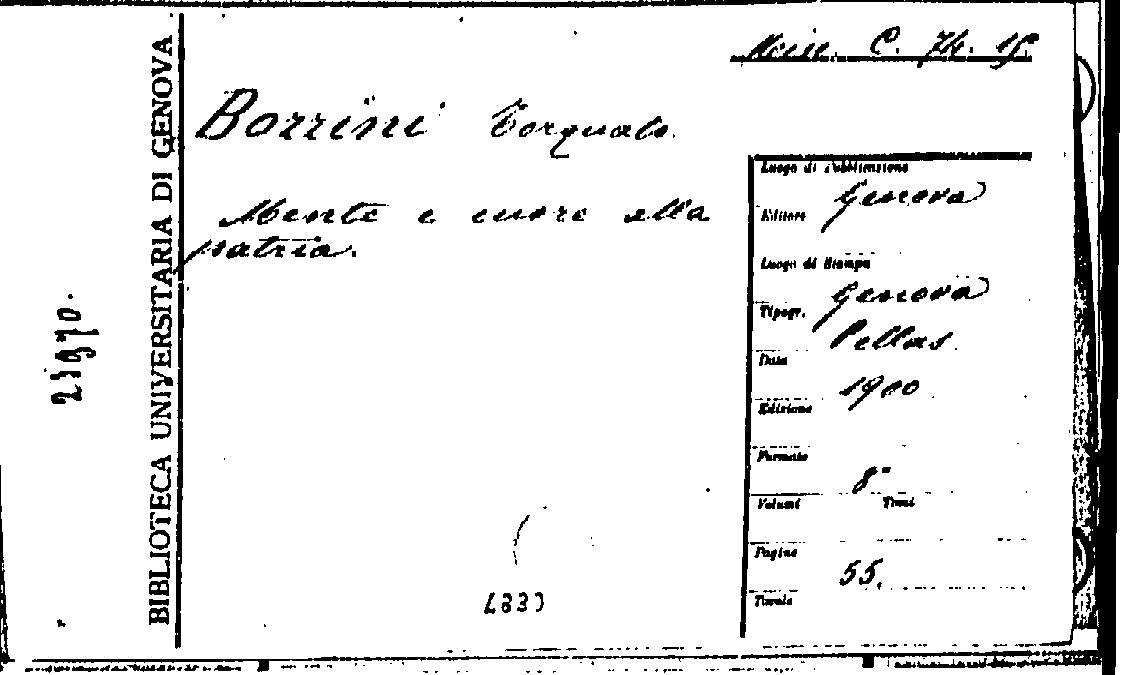 Misc. C. 74. 15.
Borrini Torquato.
Mente e cuore alla
patria.
BIBLIOTECA UNIVERSITARIA DI GENOVA
23970.
Luogo di Pubblicazione
Genova
Editore
Luogo di Stampa
Genova
Tipogr.
Pellas.
Data
1900
Edizione
Formato
8°
Volumi Tomi
Pagine
55.
Tavole